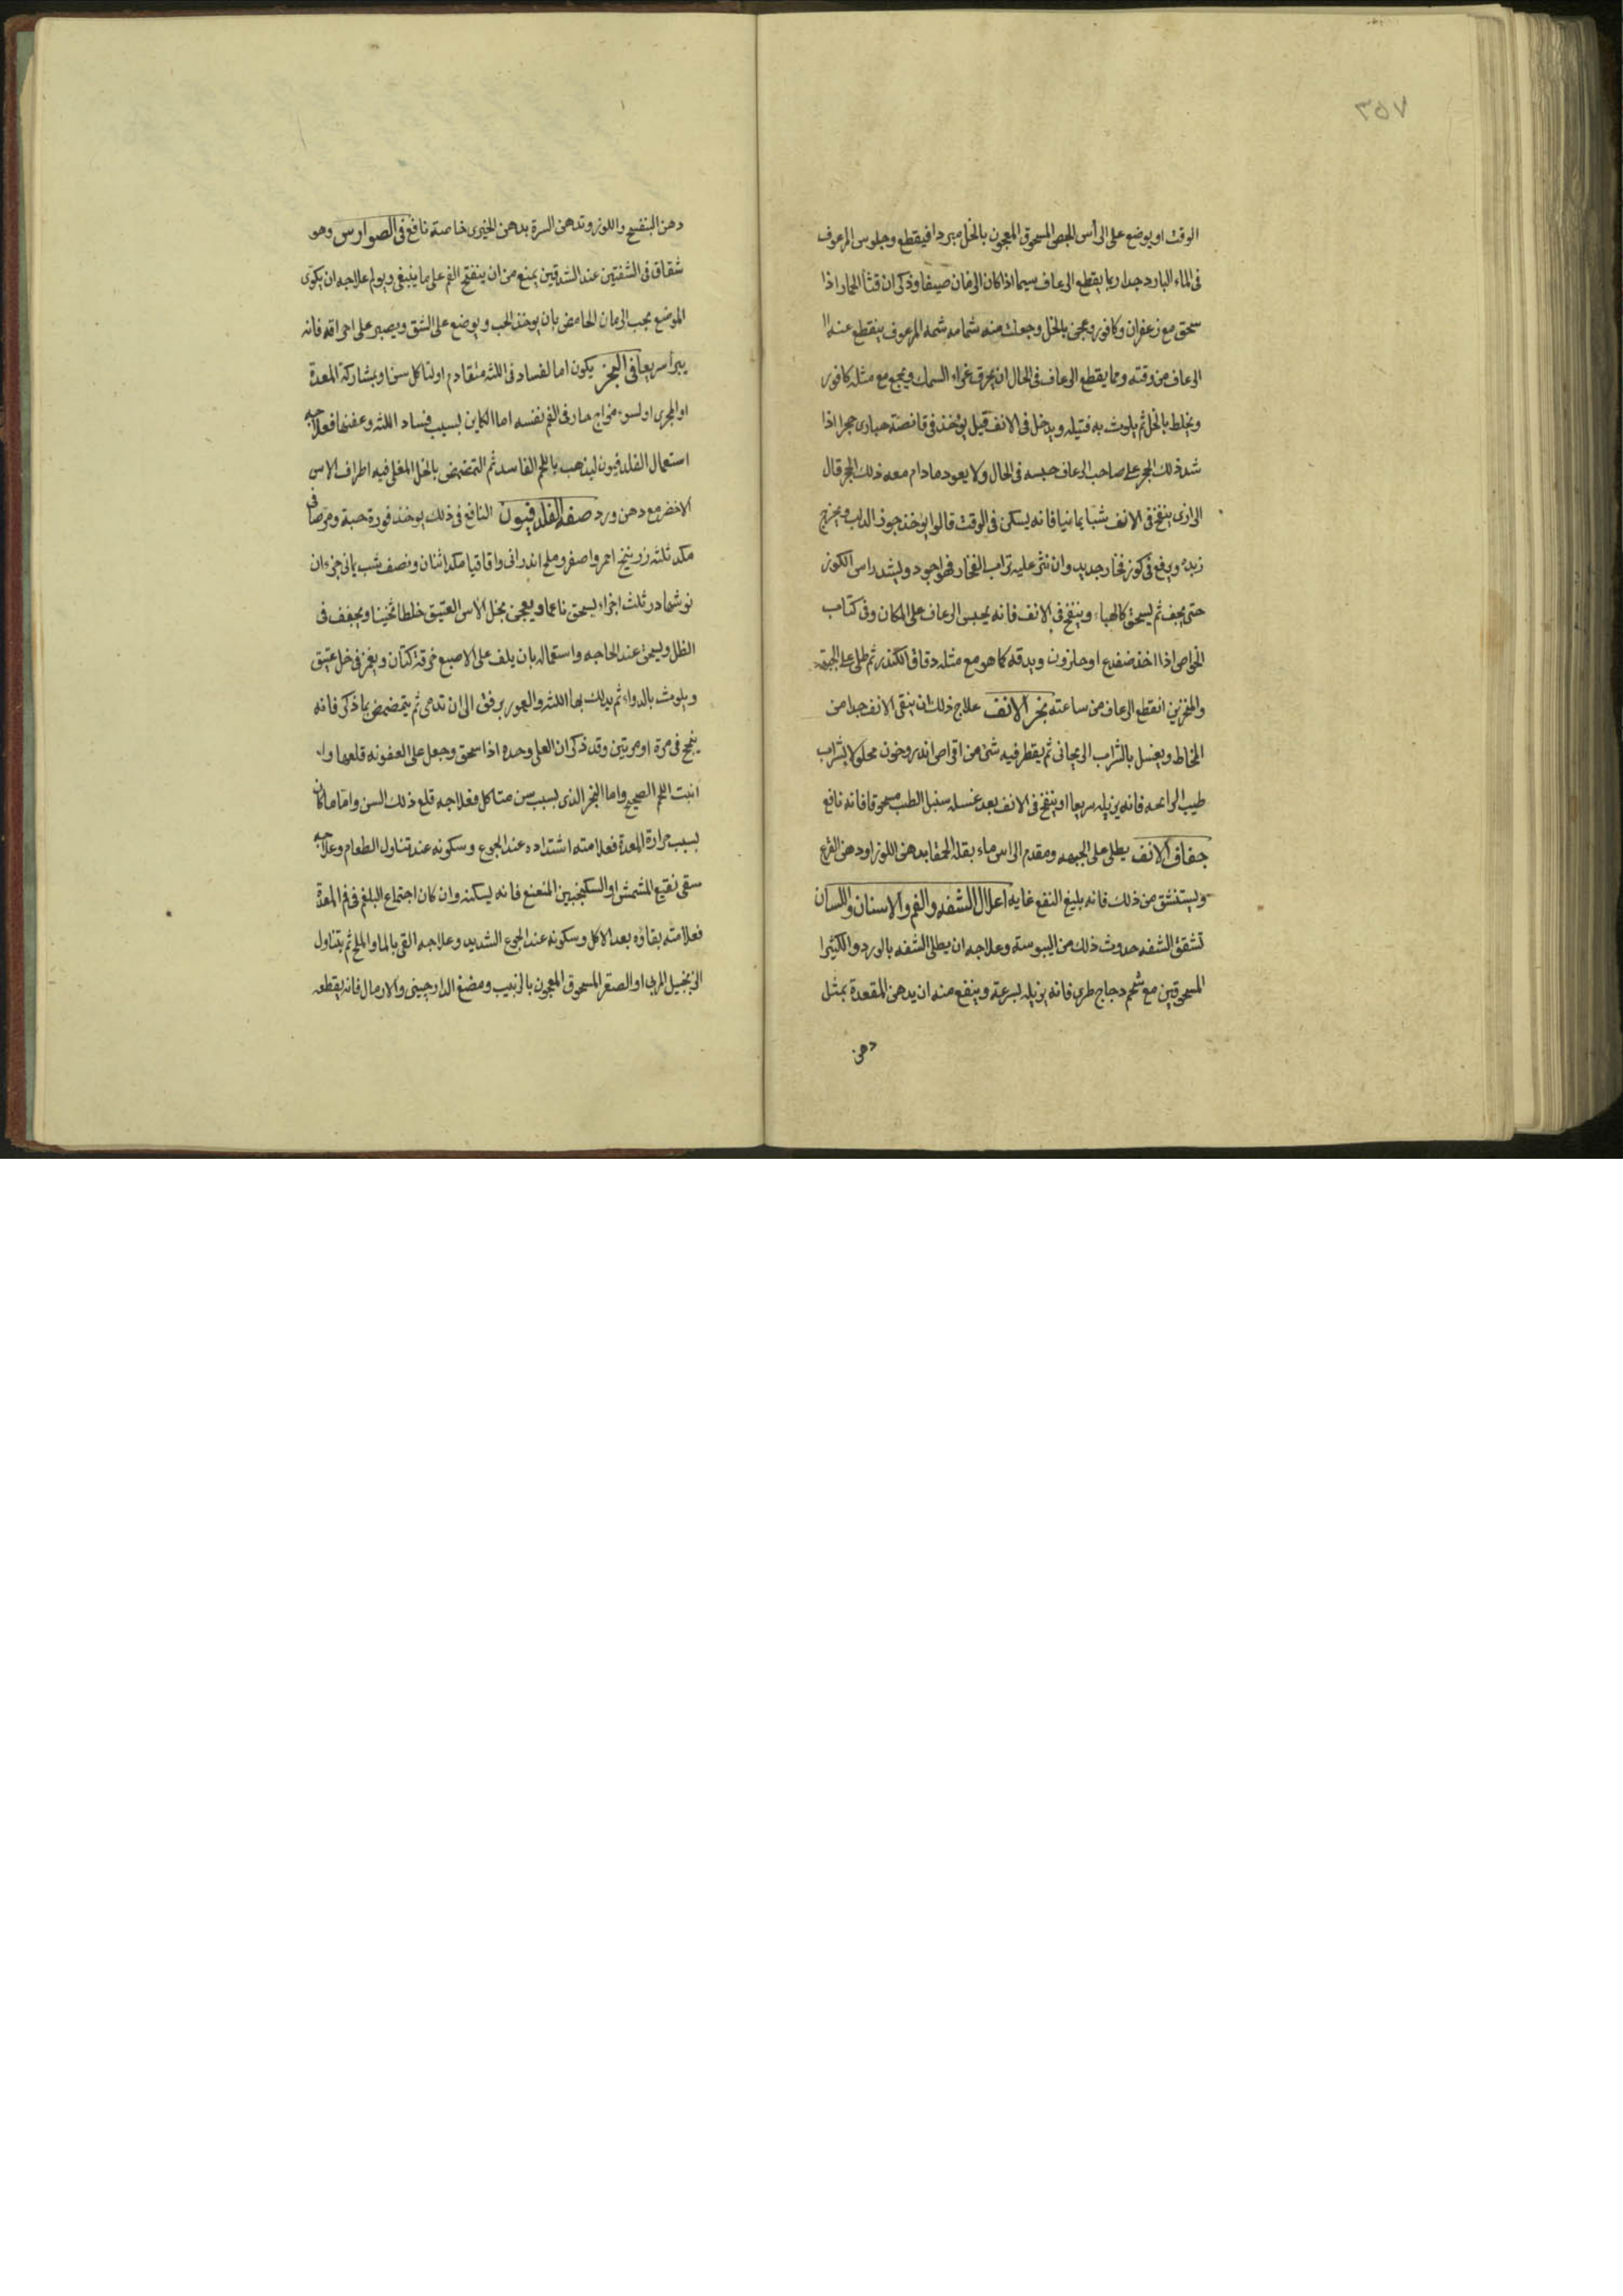 ٣٥٧
الوقت او يوضع على الرأس الجص المسحوق المعجون بالخل مبردا فيقطع وجلوس المرعوف
فى الماء البارد جدا ربما يقطع الرعاف سيما اذا كان الزمان صيفا وذكر ان قثأ الحمار اذا
سحق مع زعفران وكافور وعجن بالخل وجعلت منه شمامه شمه المرعوف ينقطع عنه ا
الرعاف من وقته ومما يقطع الرعاف فى الحال ان يحرق غراء السمك ويجمع مع مثله كافور
ويخلط بالخل ثم يلوث به فتيله ويدخل فى الانف قيل يؤخذ فى قانصة حبارى حجرا اذا
شد ذلك الحجر على صاحب الرعاف حبسه فى الحال ولا يعود مادام معه ذلك الحجر قال
الرازى ينفخ فى الانف شبا يمانيا فانه يسكن فى الوقت قالوا يؤخذ جوز الدلب ويخرج
زبده ويرفع فى كوز فخار جديد وان نثر عليه تراب الفخار فهو اجود ويشد راس الكوز
حتى يجف ثم يسحق كالهباء وينفخ فى الانف فانه يحبس الرعاف على المكان وفى كتاب
الخواص اذا اخذ ضفدع او حلزون ويدقه كما هو مع مثله دقاق الكندر ثم طلى على الجبهة
والمنخرين انقطع الرعاف من ساعته بخر الانف علاج ذلك ان ينقى الانف جيدا من
المخاط ويغسل بالشراب الريحانى ثم يقطر فيه شئ من اقراص اندروخون محلولا بشراب
طيب الرائحه فانه يزيله سريعا او ينفخ فى الانف بعد غسله سنبل الطيب مسحوقا فانه نافع
جفاف الانف يطلى على الجبهه ومقدم الراس ماء بقلة الحمقا بدهن اللوز او دهن القرع
ويستنشق من ذلك فانه بليغ النفع غايه اعلال الشفه والفم والاسنان واللسان
تشقق الشفه حدوث ذلك من اليبوسة وعلاجه ان يطلى الشفه بالورد والكثيرا
المسحوقين مع شحم دجاج طرى فانه يزيله بسرعة وينفع منه ان يدهن المقعدة بمثل
دهن
دهن البنفسج واللوز وتدهن السرة بدهن الخيرى خاصة نافع فى الصوارس وهو
شقاق فى الشفتين عند الشدقين يمنع من ان ينفتح الفم على ما ينبغى ويولم علاجه ان يكوى
الموضع بحب الرمان الحامض بان يوخذ الحب ويوضع على الشق ويصبر على احراقه فانه
يبرأ سريعا فى البخر يكون اما لفساد فى اللثه متقادم او لتاكل سن او بمشاركة المعدة
او المجرى او لسوء مزاج حار فى الفم نفسه اما الكاين بسبب فساد اللثه وعفنها فعلاجه
استعمال الفلدفيون ليذهب باللحم الفاسد ثم التمضمض بالخل المغلى فيه اطراف الاس
الاخضر مع دهن ورد صفة الفلدفيون النافع فى ذلك يوخذ نورة حية ومرصافى
مكد ثلثه زرنيخ احمر واصفر وملح اندرانى واقاقيا مكد اثنان ونصف شب يمانى جزءان
نوشادر ثلث اجزاء يسحق ناعما ويعجن بخل الاس العتيق خلطا ثخينا ويجفف فى
الظل ويسحق عند الحاجه واستعماله بان يلف على الاصبع خرقة كتان ويغمز فى خل عتيق
ويلوث بالدواء ثم يدلك بها اللثه والعمور برفق الى ان تدمى ثم يتمضمض بما ذكر فانه
ينجح فى مرة او مرتين وقد ذكر ان العلى وحده اذا سحق وجعل على العفونه قلعها وا
انبت اللحم الصحيح واما البخر الذى بسبب سن متاكل فعلاجه قلع ذلك السن واما ما كان
بسبب حرارة المعدة فعلامته اشتداده عند الجوع وسكونه عند تناول الطعام وعلاجه
سقى نقيع المشمش او السكنجبين المنعنع فانه يسكنه وان كان اجتماع البلغم فى فم المعدة
فعلامته بقاؤه بعد الاكل وسكونه عند الجوع الشديد وعلاجه القى بالما والملح ثم يتناول
الزنجبيل المربى او الصعتر المسحوق المعجون بالزبيب ومضغ الدارچينى والارمال فانه يقطعه